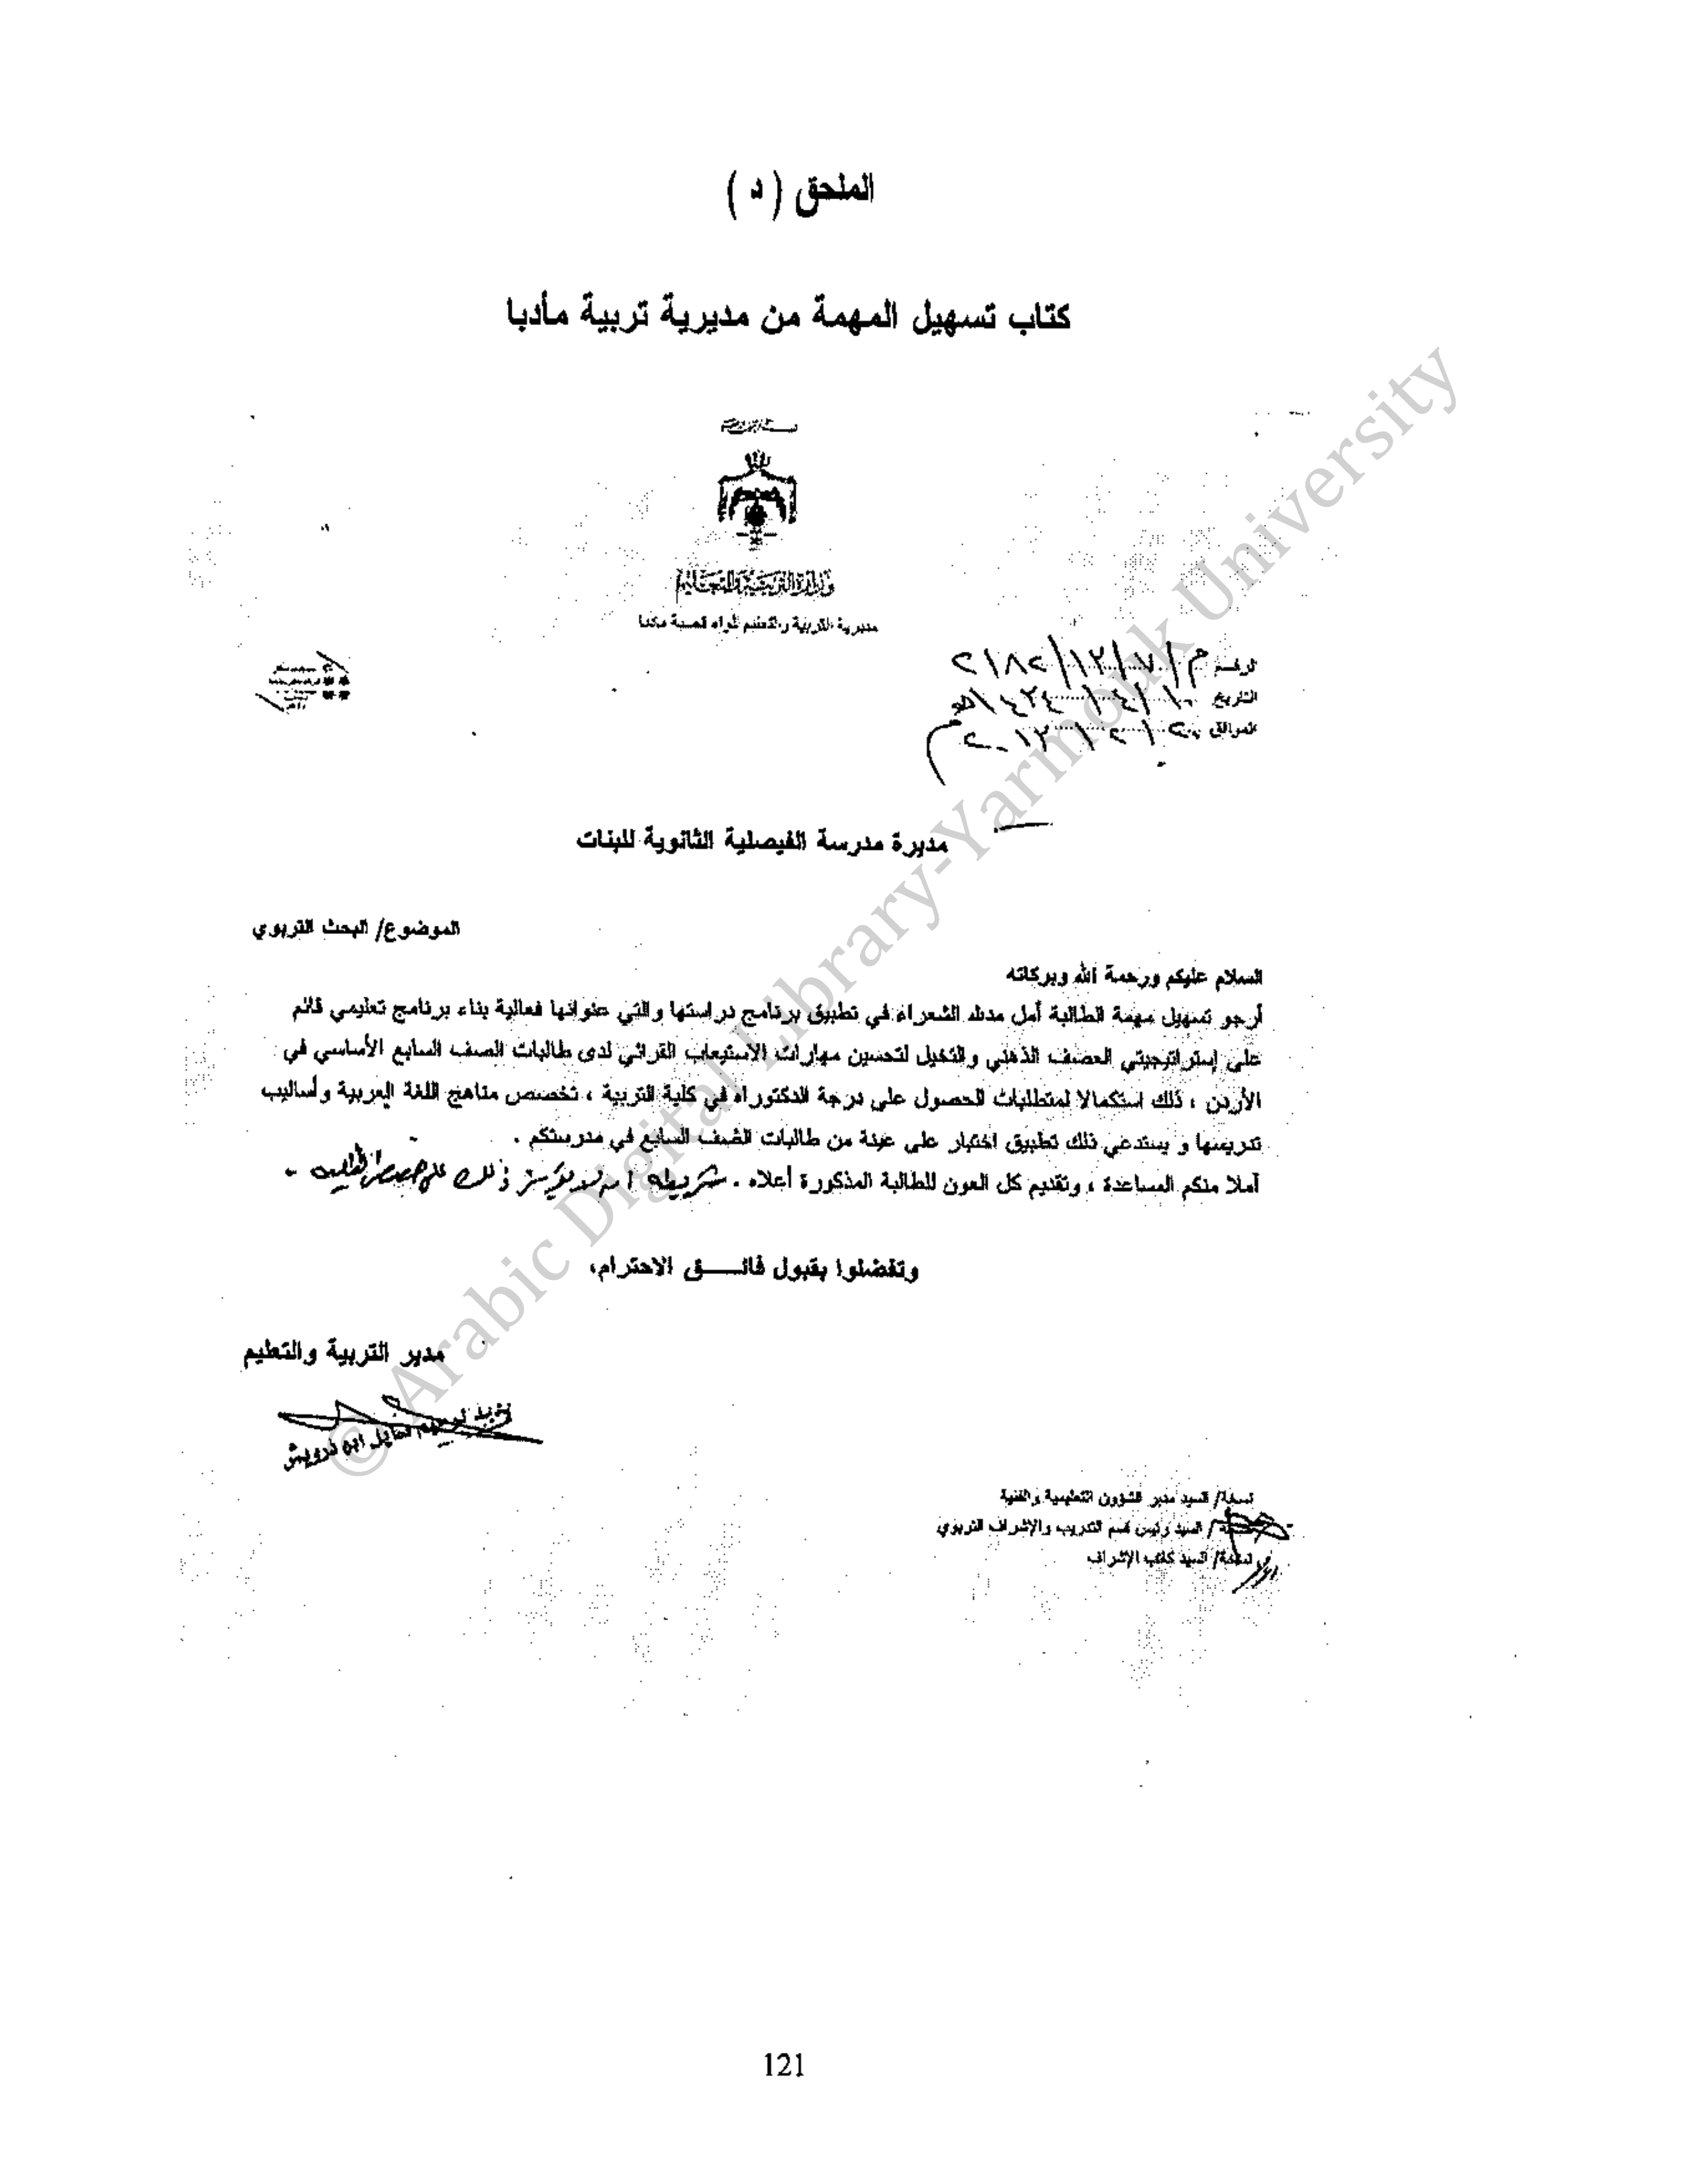 الملحق ( د )
كتاب تسهيل المهمة من مديرية تربية مأدبا
وزارة التربية والتعليم
مديرية التربية والتعليم للواء قصبة مادبا
الرقم م/١٢/٧/٢١٨٢
التاريخ
الموافق
مديرة مدرسة الفيصلية الثانوية للبنات
الموضوع/ البحث التربوي
السلام عليكم ورحمة الله وبركاته
أرجو تسهيل مهمة الطالبة أمل مدالله الشعراء في تطبيق برنامج دراستها والتي عنوانها فعالية بناء برنامج تعليمي قائم
على إستراتيجيتي العصف الذهني والتخيل لتحسين مهارات الاستيعاب القرائي لدى طالبات الصف السابع الأساسي في
الأردن ، ذلك استكمالا لمتطلبات الحصول على درجة الدكتوراه في كلية التربية ، تخصص مناهج اللغة العربية وأساليب
تدريسها و يستدعي ذلك تطبيق اختبار على عينة من طالبات الصف السابع في مدرستكم .
آملا منكم المساعدة ، وتقديم كل العون للطالبة المذكورة أعلاه . شريطة ذلك على
وتفضلوا بقبول فائـــــق الاحترام،
مدير التربية والتعليم
نسخة/ السيد مدير الشؤون التعليمية والفنية
نسخة/ السيد رئيس قسم التدريب والإشراف التربوي
نسخة/ السيد كاتب الإشراف
© Arabic Digital Library-Yarmouk University
121